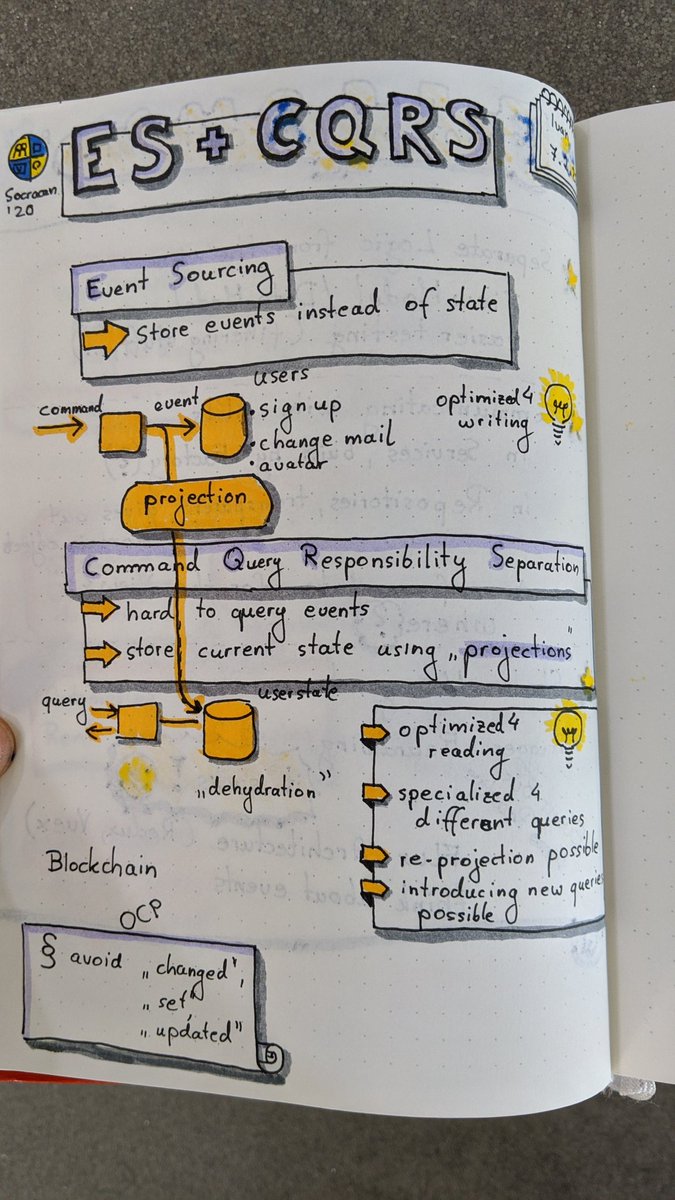 ES + CQRS
Socracan
'20
Event Sourcing
Store events instead of state
command
event
users
• sign up
• change mail
• avatar
optimized 4
writing
projection
Command Query Responsibility Separation
hard to query events
store current state using „projections"
query
userstate
„dehydration"
optimized 4
reading
specialized 4
different queries
re-projection possible
introducing new queries
possible
Blockchain
OCP
§ avoid „changed",
„set",
„updated"